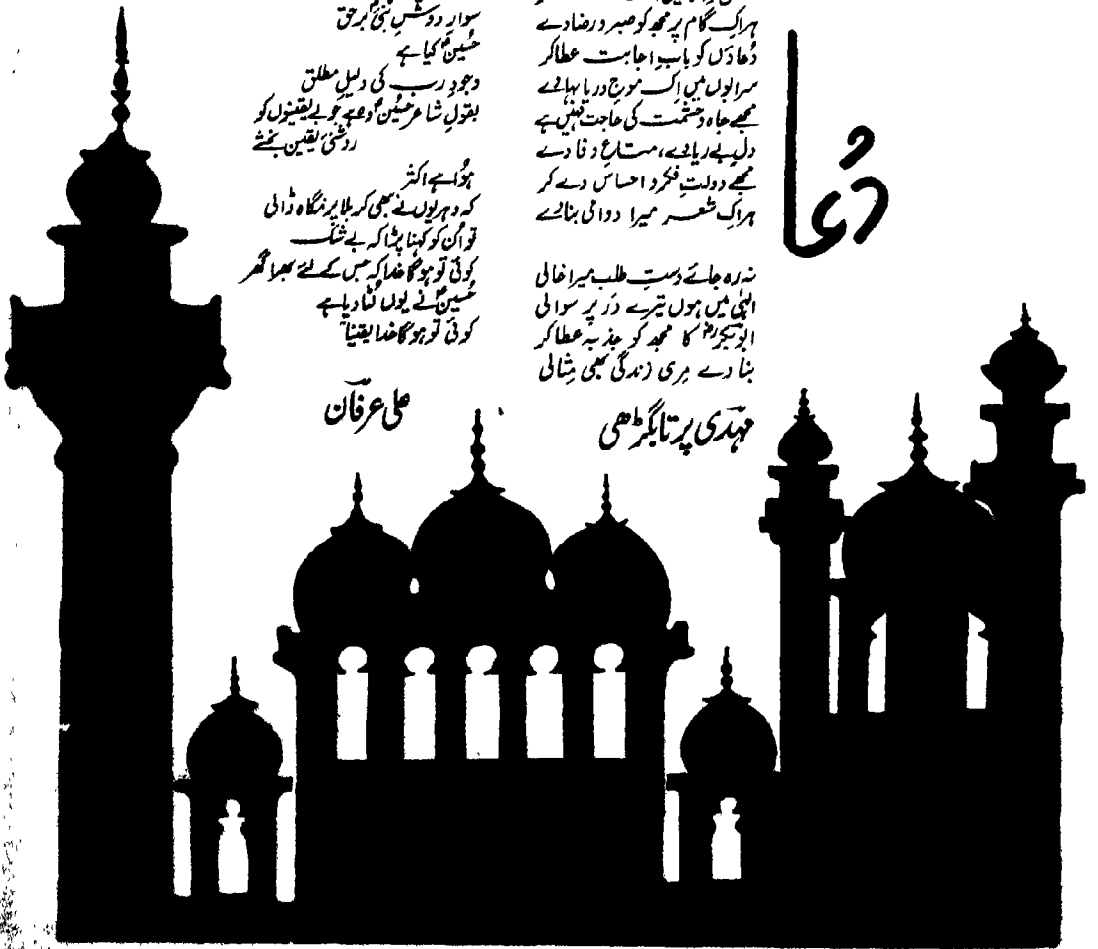 دُعا
ہر اِک گام پر مجھ کو صبر و رضا دے
دُعاؤں کو بابِ اجابت عطا کر
سرابوں میں اِک موجِ دریا بہا دے
مجھے جاہ و حشمت کی حاجت نہیں ہے
دلِ بے ریا دے، متاعِ وفا دے
مجھے دولتِ فکر و احساس دے کر
ہر اِک شعر میرا دوامی بنا دے
نہ رہ جائے دستِ طلب میرا خالی
الہٰی میں ہوں تیرے در پر سوالی
ابوبکرؓ کا مجھ کو جذبہ عطا کر
بنا دے مِری زندگی بھی مِثالی
مہدی پرتابگڑھی
سوارِ دوشِ نبیؐ برحق
حُسینؑ کیا ہے
وجودِ رب کی دلیلِ مطلق
بقولِ شاعر حُسینؑ وہ ہے جو بے یقینوں کو
روشنیٔ یقین بخشے
ہُوا ہے اکثر
کہ دہریوں نے بھی کربلا پر نگاہ ڈالی
تو اُن کو کہنا پڑا کہ بے شک
کوئی تو ہوگا خدا کہ جس کے لئے بھرا گھر
حُسینؑ نے یوں لُٹا دیا ہے
کوئی تو ہوگا خدا یقیناً
علی عرفان